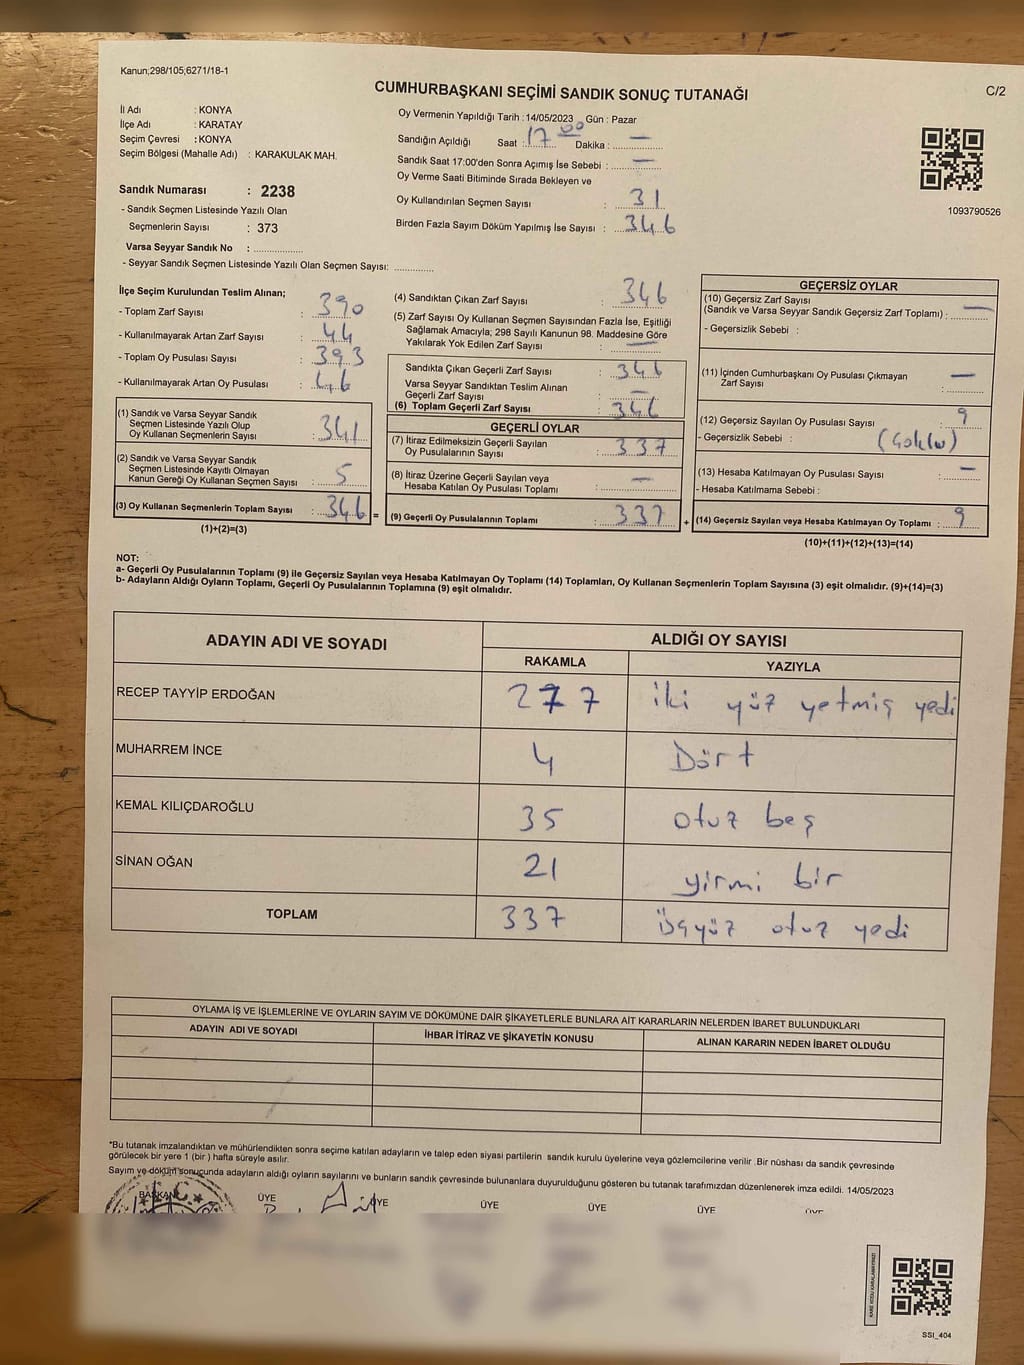 Kanun;298/105;6271/18-1
CUMHURBAŞKANI SEÇİMİ SANDIK SONUÇ TUTANAĞI
C/2
İl Adı : KONYA
İlçe Adı : KARATAY
Seçim Çevresi : KONYA
Seçim Bölgesi (Mahalle Adı) : KARAKULAK MAH.
Sandık Numarası : 2238
- Sandık Seçmen Listesinde Yazılı Olan
Seçmenlerin Sayısı : 373
Varsa Seyyar Sandık No :
- Seyyar Sandık Seçmen Listesinde Yazılı Olan Seçmen Sayısı:
Oy Vermenin Yapıldığı Tarih :14/05/2023 Gün : Pazar
Sandığın Açıldığı Saat : 17 00 Dakika : —
Sandık Saat 17:00'den Sonra Açımış İse Sebebi : —
Oy Verme Saati Bitiminde Sırada Bekleyen ve
Oy Kullandırılan Seçmen Sayısı : 31
Birden Fazla Sayım Döküm Yapılmış İse Sayısı : 346
1093790526
İlçe Seçim Kurulundan Teslim Alınan;
- Toplam Zarf Sayısı : 390
- Kullanılmayarak Artan Zarf Sayısı : 44
- Toplam Oy Pusulası Sayısı : 393
- Kullanılmayarak Artan Oy Pusulası : 46
(1) Sandık ve Varsa Seyyar Sandık
Seçmen Listesinde Yazılı Olup
Oy Kullanan Seçmenlerin Sayısı : 341
(2) Sandık ve Varsa Seyyar Sandık
Seçmen Listesinde Kayıtlı Olmayan
Kanun Gereği Oy Kullanan Seçmen Sayısı : 5
(3) Oy Kullanan Seçmenlerin Toplam Sayısı : 346 =
(1)+(2)=(3)
(4) Sandıktan Çıkan Zarf Sayısı : 346
(5) Zarf Sayısı Oy Kullanan Seçmen Sayısından Fazla İse, Eşitliği
Sağlamak Amacıyla; 298 Sayılı Kanunun 98. Maddesine Göre
Yakılarak Yok Edilen Zarf Sayısı : —
Sandıkta Çıkan Geçerli Zarf Sayısı : 346
Varsa Seyyar Sandıktan Teslim Alınan
Geçerli Zarf Sayısı : —
(6) Toplam Geçerli Zarf Sayısı : 346
GEÇERLİ OYLAR
(7) İtiraz Edilmeksizin Geçerli Sayılan
Oy Pusulalarının Sayısı : 337
(8) İtiraz Üzerine Geçerli Sayılan veya
Hesaba Katılan Oy Pusulası Toplamı : —
(9) Geçerli Oy Pusulalarının Toplamı : 337 +
GEÇERSİZ OYLAR
(10) Geçersiz Zarf Sayısı
(Sandık ve Varsa Seyyar Sandık Geçersiz Zarf Toplamı) : —
- Geçersizlik Sebebi :
(11) İçinden Cumhurbaşkanı Oy Pusulası Çıkmayan
Zarf Sayısı : —
(12) Geçersiz Sayılan Oy Pusulası Sayısı : 9
- Geçersizlik Sebebi :
(13) Hesaba Katılmayan Oy Pusulası Sayısı : —
- Hesaba Katılmama Sebebi :
(14) Geçersiz Sayılan veya Hesaba Katılmayan Oy Toplamı : 9
(10)+(11)+(12)+(13)=(14)
NOT:
a- Geçerli Oy Pusulalarının Toplamı (9) ile Geçersiz Sayılan veya Hesaba Katılmayan Oy Toplamı (14) Toplamları, Oy Kullanan Seçmenlerin Toplam Sayısına (3) eşit olmalıdır. (9)+(14)=(3)
b- Adayların Aldığı Oyların Toplamı, Geçerli Oy Pusulalarının Toplamına (9) eşit olmalıdır.
ADAYIN ADI VE SOYADI ALDIĞI OY SAYISI
RAKAMLA YAZIYLA
RECEP TAYYİP ERDOĞAN 277 iki yüz yetmiş yedi
MUHARREM İNCE 4 Dört
KEMAL KILIÇDAROĞLU 35 otuz beş
SİNAN OĞAN 21 yirmi bir
TOPLAM 337 üçyüz otuz yedi
OYLAMA İŞ VE İŞLEMLERİNE VE OYLARIN SAYIM VE DÖKÜMÜNE DAİR ŞİKAYETLERLE BUNLARA AİT KARARLARIN NELERDEN İBARET BULUNDUKLARI
ADAYIN ADI VE SOYADI İHBAR İTİRAZ VE ŞİKAYETİN KONUSU ALINAN KARARIN NEDEN İBARET OLDUĞU
*Bu tutanak imzalandıktan ve mühürlendikten sonra seçime katılan adayların ve talep eden siyasi partilerin sandık kurulu üyelerine veya gözlemcilerine verilir .Bir nüshası da sandık çevresinde
görülecek bir yere 1 (bir ) hafta süreyle asılır.
Sayım ve döküm sonucunda adayların aldığı oyların sayılarını ve bunların sandık çevresinde bulunanlara duyurulduğunu gösteren bu tutanak tarafımızdan düzenlenerek imza edildi. 14/05/2023
BAŞKAN ÜYE ÜYE ÜYE ÜYE ÜYE ÜYE
T.C.
SSI_404